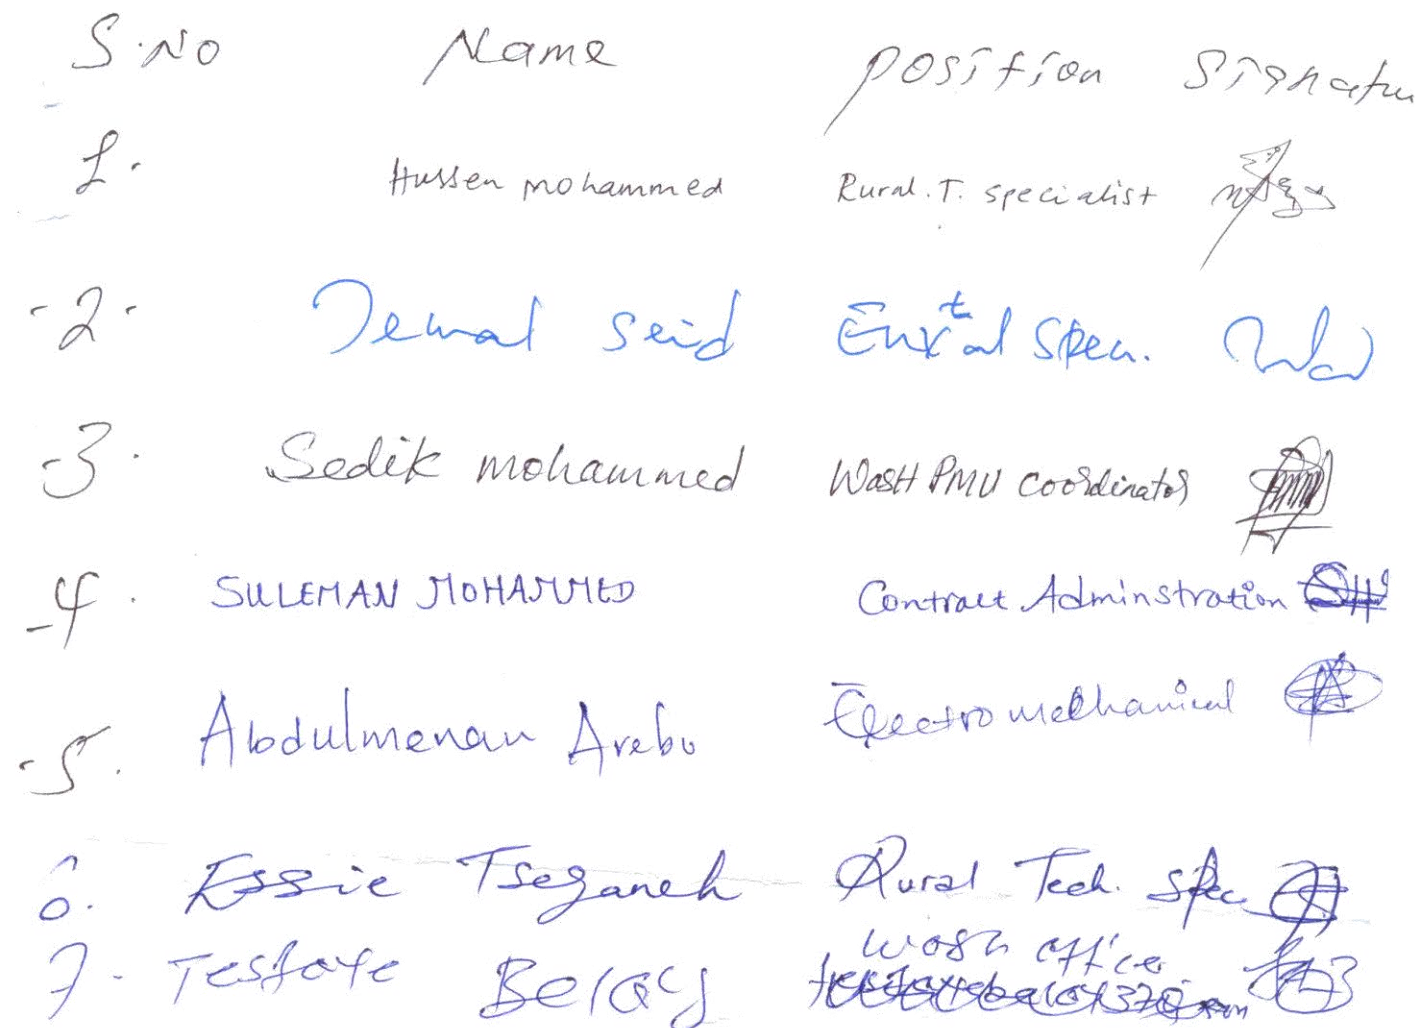 S.No Name position Signatur
1. Hussen mohammed Rural. T. specialist
-2- Jemal Seid Spec.
-3. Sedik mohammed WasH PMU coordinator
-4. SULEMAN MOHAMMED Contract Adminstration
-5. Abdulmenan Arebu Electromechanical
6. Essie Tseganeh Rural Tech. Spec
wosh office
7. Tesfaye Belay